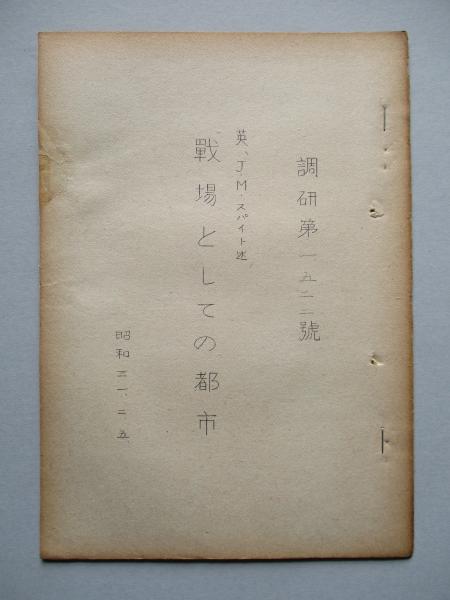 調研第一五二二號
英、J・M・スパイト述
戰場としての都市
昭和三一、二、五、